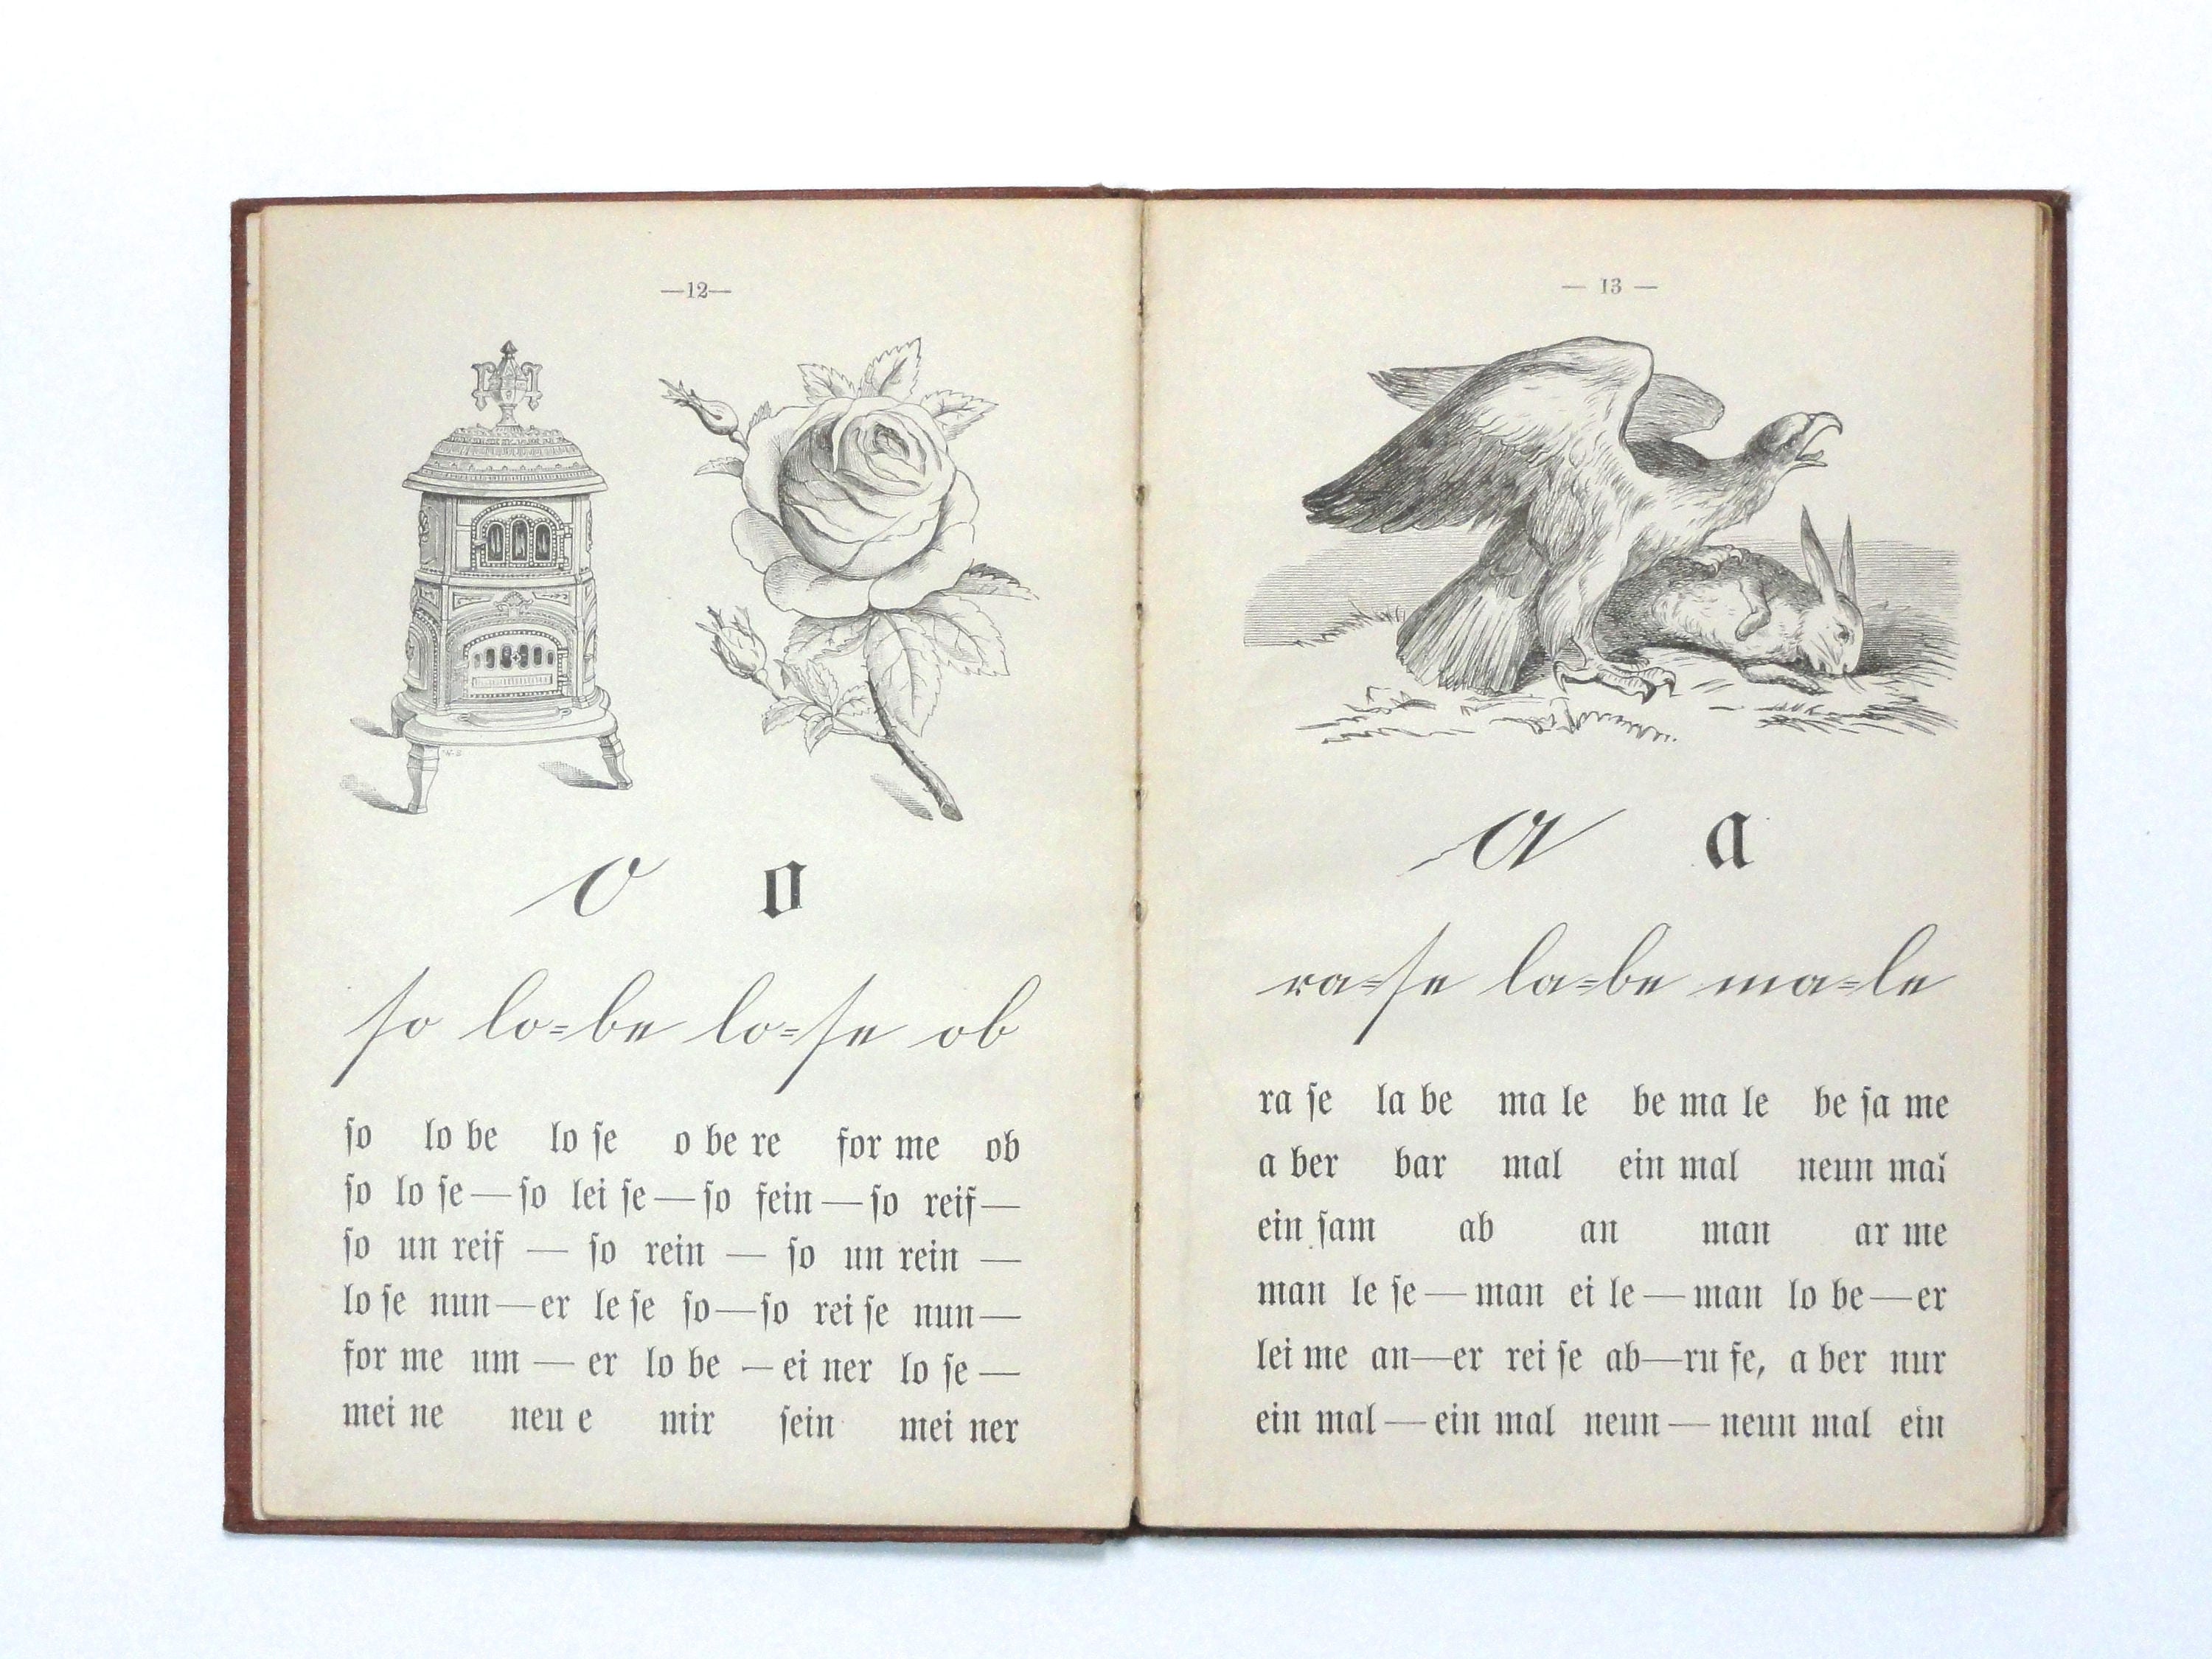 —12—
o o
ſo lo=be lo=ſe ob
ſo lo be lo ſe o be re for me ob
ſo lo ſe—ſo lei ſe—ſo fein—ſo reif—
ſo un reif — ſo rein — ſo un rein —
lo ſe nun—er le ſe ſo—ſo rei ſe nun—
for me um — er lo be — ei ner lo ſe —
mei ne neu e mir ſein mei ner
— 13 —
a a
ra=ſe la=be ma=le
ra ſe la be ma le be ma le be ſa me
a ber bar mal ein mal neun mal
ein ſam ab an man ar me
man le ſe—man ei le—man lo be—er
lei me an—er rei ſe ab—ru fe, a ber nur
ein mal—ein mal neun—neun mal ein